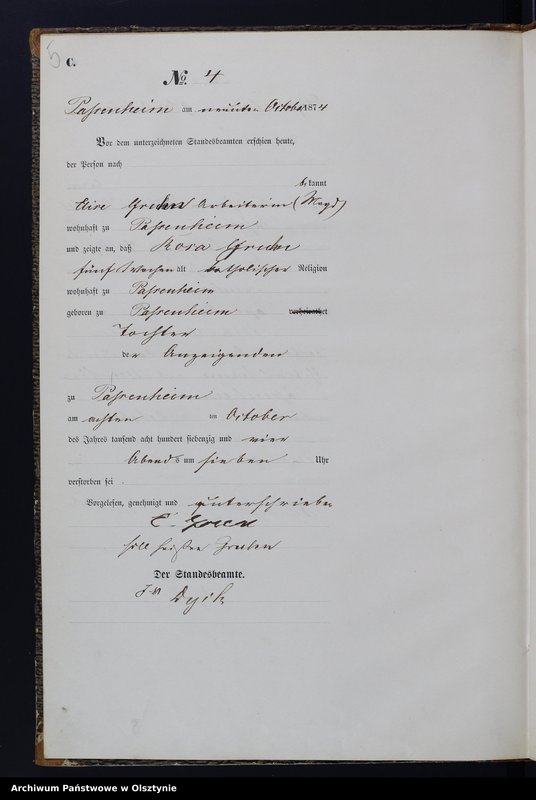 5
C.
No. 4
Passenheim am neunten October 1874
Vor dem unterzeichneten Standesbeamten erschien heute,
der Person nach
bekannt
Arbeiterin (Magd)
wohnhaft zu Passenheim
und zeigte an, daß Rosa
fünf Wochen alt katholischer Religion
wohnhaft zu Passenheim
geboren zu Passenheim verheirathet
Tochter
der Anzeigenden
zu Passenheim
am achten ten October
des Jahres tausend acht hundert siebenzig und vier
Abends um sieben Uhr
verstorben sei.
Vorgelesen, genehmigt und unterschrieben
soll heißen
Der Standesbeamte.
Archiwum Państwowe w Olsztynie